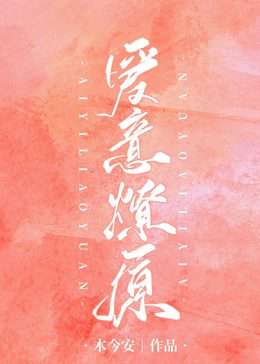 爱意燎原
·AIYILIAOYUAN·
·AIYILIAOYUAN·
·木今安|作品·